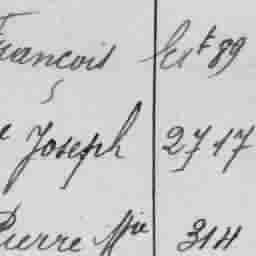 François
Joseph 2717
Pierre Mie 314